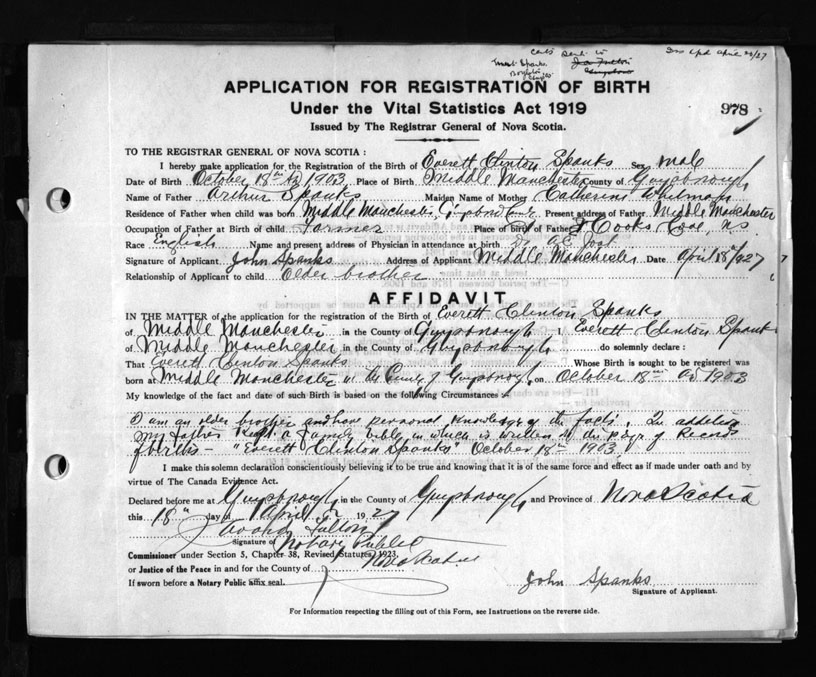 Cert. Sent to
Ins Apd April 22/27
APPLICATION FOR REGISTRATION OF BIRTH
Under the Vital Statistics Act 1919
978
Issued by The Registrar General of Nova Scotia.
TO THE REGISTRAR GENERAL OF NOVA SCOTIA :
I hereby make application for the Registration of the Birth of Everett Clinton Spanks Sex Male
Date of Birth October 18th AD 1903 Place of Birth Middle Manchester County of Guysborough
Name of Father Arthur Spanks Maiden Name of Mother Catherine Whitman
Residence of Father when child was born Middle Manchester, Present address of Father Middle Manchester
Occupation of Father at Birth of child Farmer Place of Birth of Father Cooks Cove, N.S.
Race English Name and present address of Physician in attendance at birth Dr A.C. Jost
Signature of Applicant John Spanks Address of Applicant Middle Manchester Date April 18/1927
Relationship of Applicant to child Older brother
AFFIDAVIT
IN THE MATTER of the application for the registration of the Birth of Everett Clinton Spanks
of Middle Manchester in the County of Guysborough I Everett Clinton Spanks
of Middle Manchester in the County of Guysborough do solemnly declare :
That Everett Clinton Spanks Whose Birth is sought to be registered was
born at Middle Manchester in the County of Guysborough on October 18th AD 1903
My knowledge of the fact and date of such Birth is based on the following Circumstances :
I am an older brother and have personal knowledge of the facts. In addition
my father kept a family bible in which is written at the page of Records
of births - "Everett Clinton Spanks" October 18th 1903.
I make this solemn declaration conscientiously believing it to be true and knowing that it is of the same force and effect as if made under oath and by
virtue of The Canada Evidence Act.
Declared before me at Guysborough in the County of Guysborough and Province of Nova Scotia
this 18th day of April 1927
Fulton
Signature of Notary Public
Commissioner under Section 5, Chapter 38, Revised Statutes, 1923.
or Justice of the Peace in and for the County of Nova Scotia
If sworn before a Notary Public affix seal.
John Spanks
Signature of Applicant.
For Information respecting the filling out of this Form, see Instructions on the reverse side.